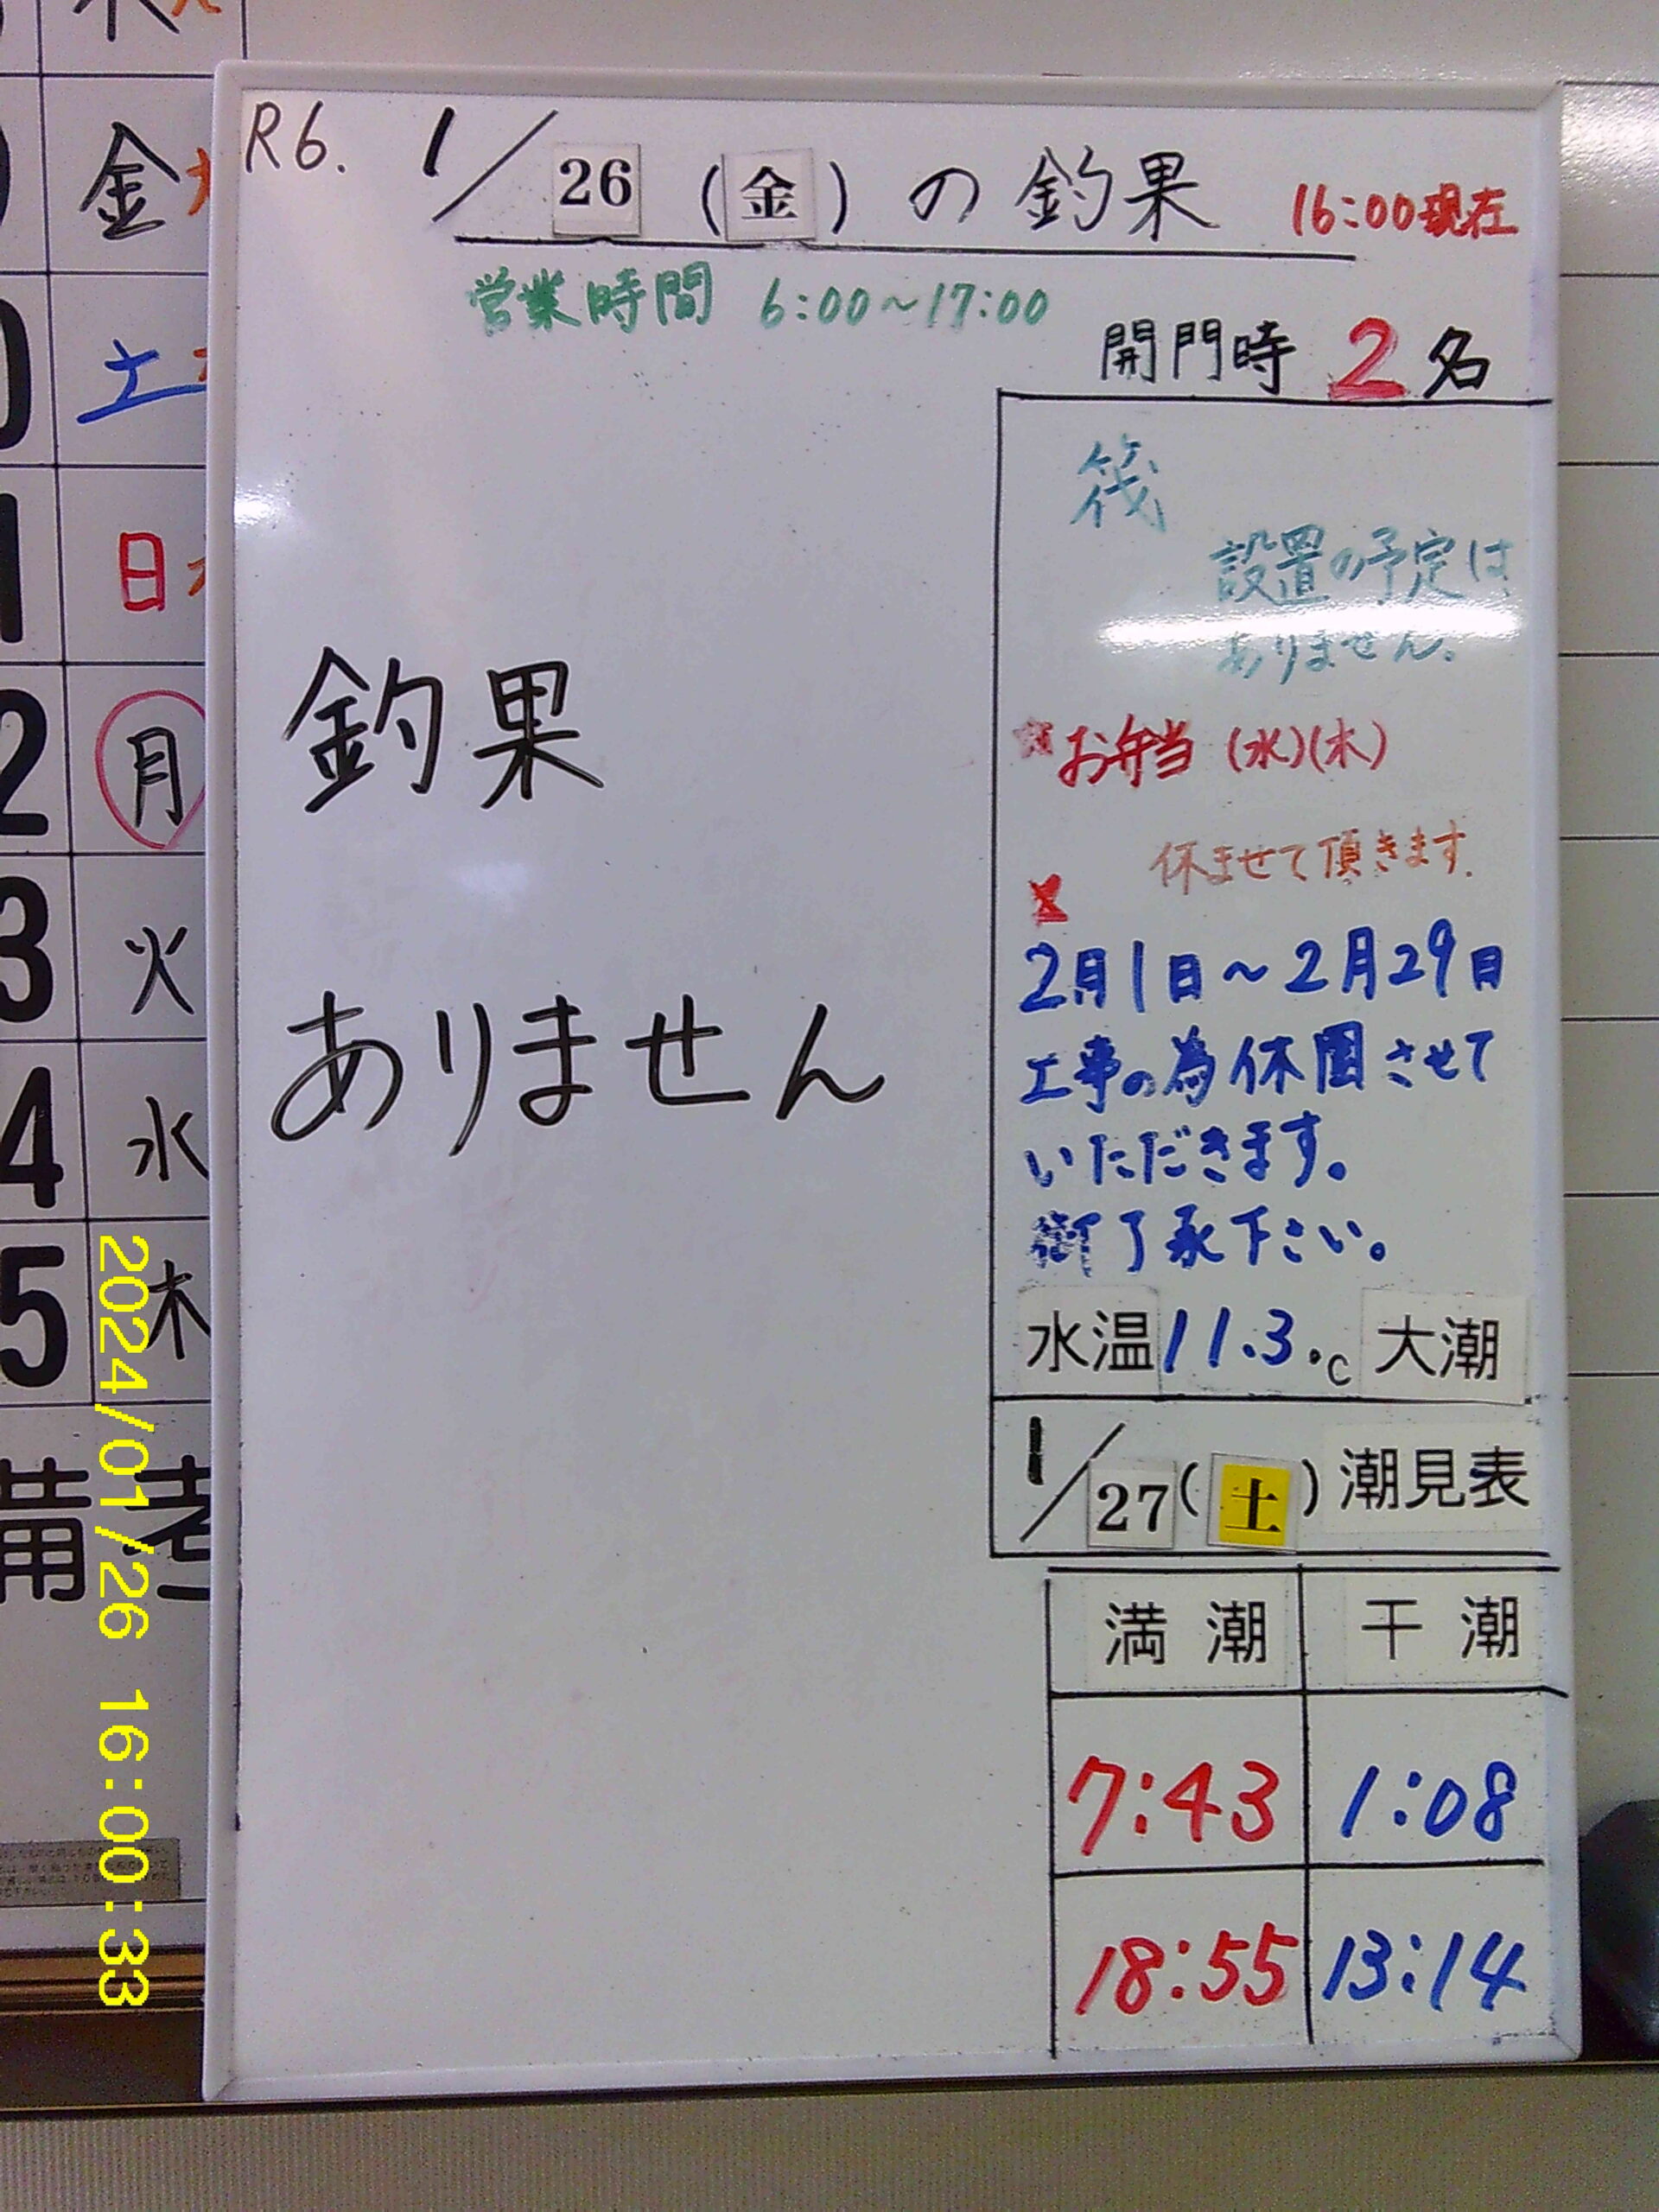 R6. 1/26(金)の釣果 16:00現在
営業時間 6:00~17:00
開門時 2名
釣果
ありません
筏
設置の予定は
ありません。
☆お弁当(水)(木)
休ませて頂きます.
2月1日~2月29日
工事の為休園させて
いただきます。
御了承下さい。
水温11.3℃ 大潮
1/27(土)潮見表
満潮 干潮
7:43 1:08
18:55 13:14
金
土
日
2 月
3 火
4 水
5 木
備考
2024/01/26 16:00:33